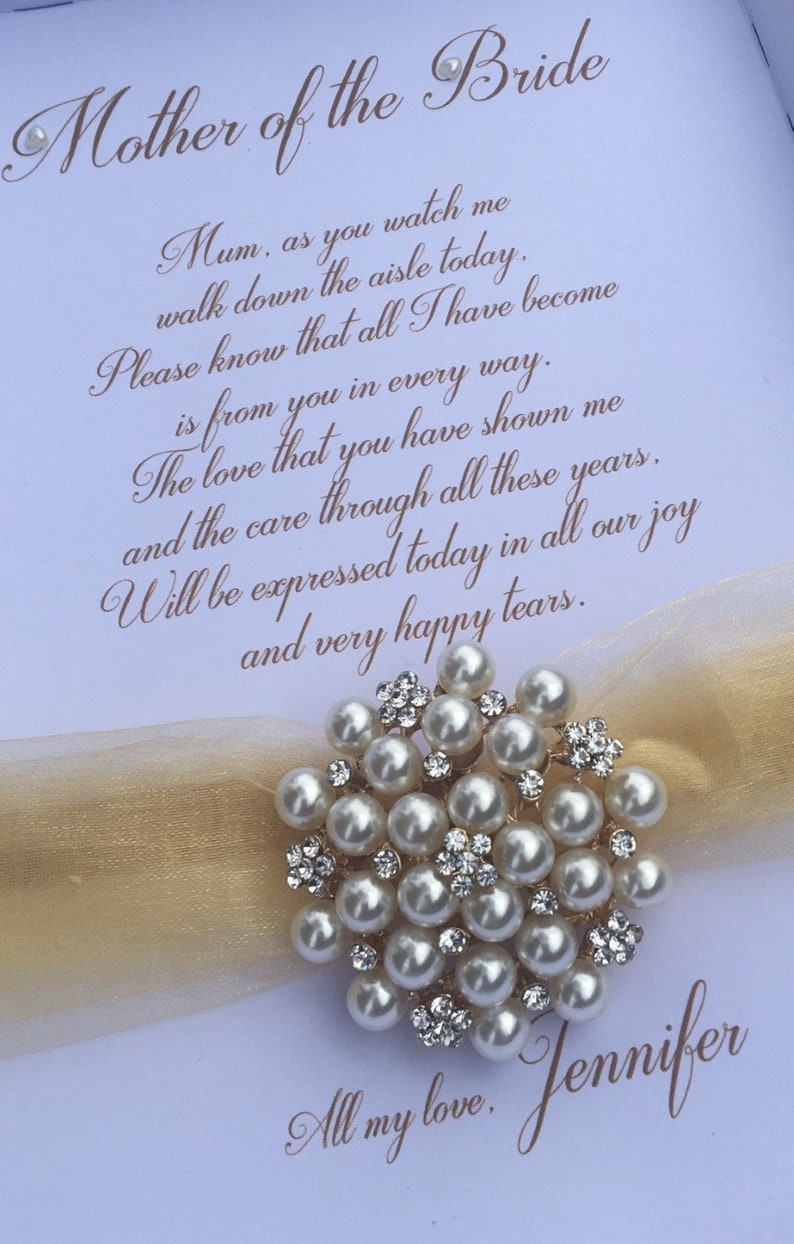 Mother of the Bride
Mum, as you watch me
walk down the aisle today,
Please know that all I have become
is from you in every way.
The love that you have shown me
and the care through all these years,
Will be expressed today in all our joy
and very happy tears.
All my love, Jennifer